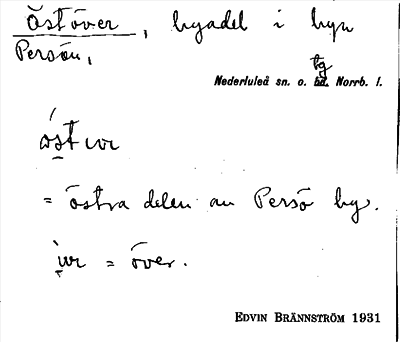 Öståver, byadel i byn
Persön,
tg
Nederluleå sn. o. hd. Norrb. l.
óst ıvr
= östra delen av Persö by.
ı̀vr = över.
EDVIN BRÄNNSTRÖM 1931